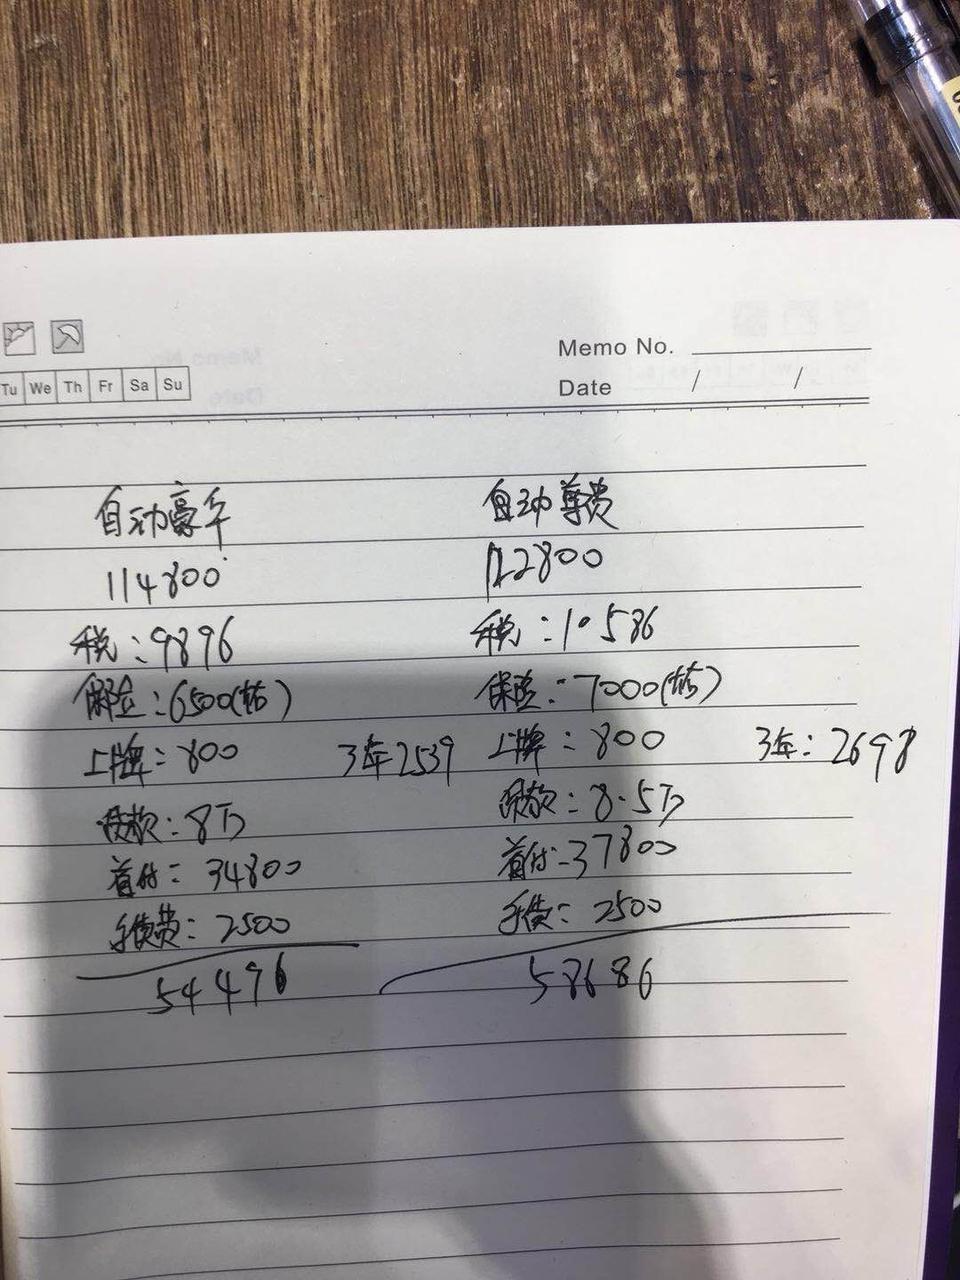 Memo No.
Date / /
Tu We Th Fr Sa Su
自动豪华
114800
税:9896
保险:6500(估)
上牌:800
3年2539
贷款:8万
首付:34800
手续费:2500
54496
自动尊贵
122800
税:10586
保险:7000(估)
上牌:800
3年:2698
贷款:8.5万
首付:37800
手费:2500
58686